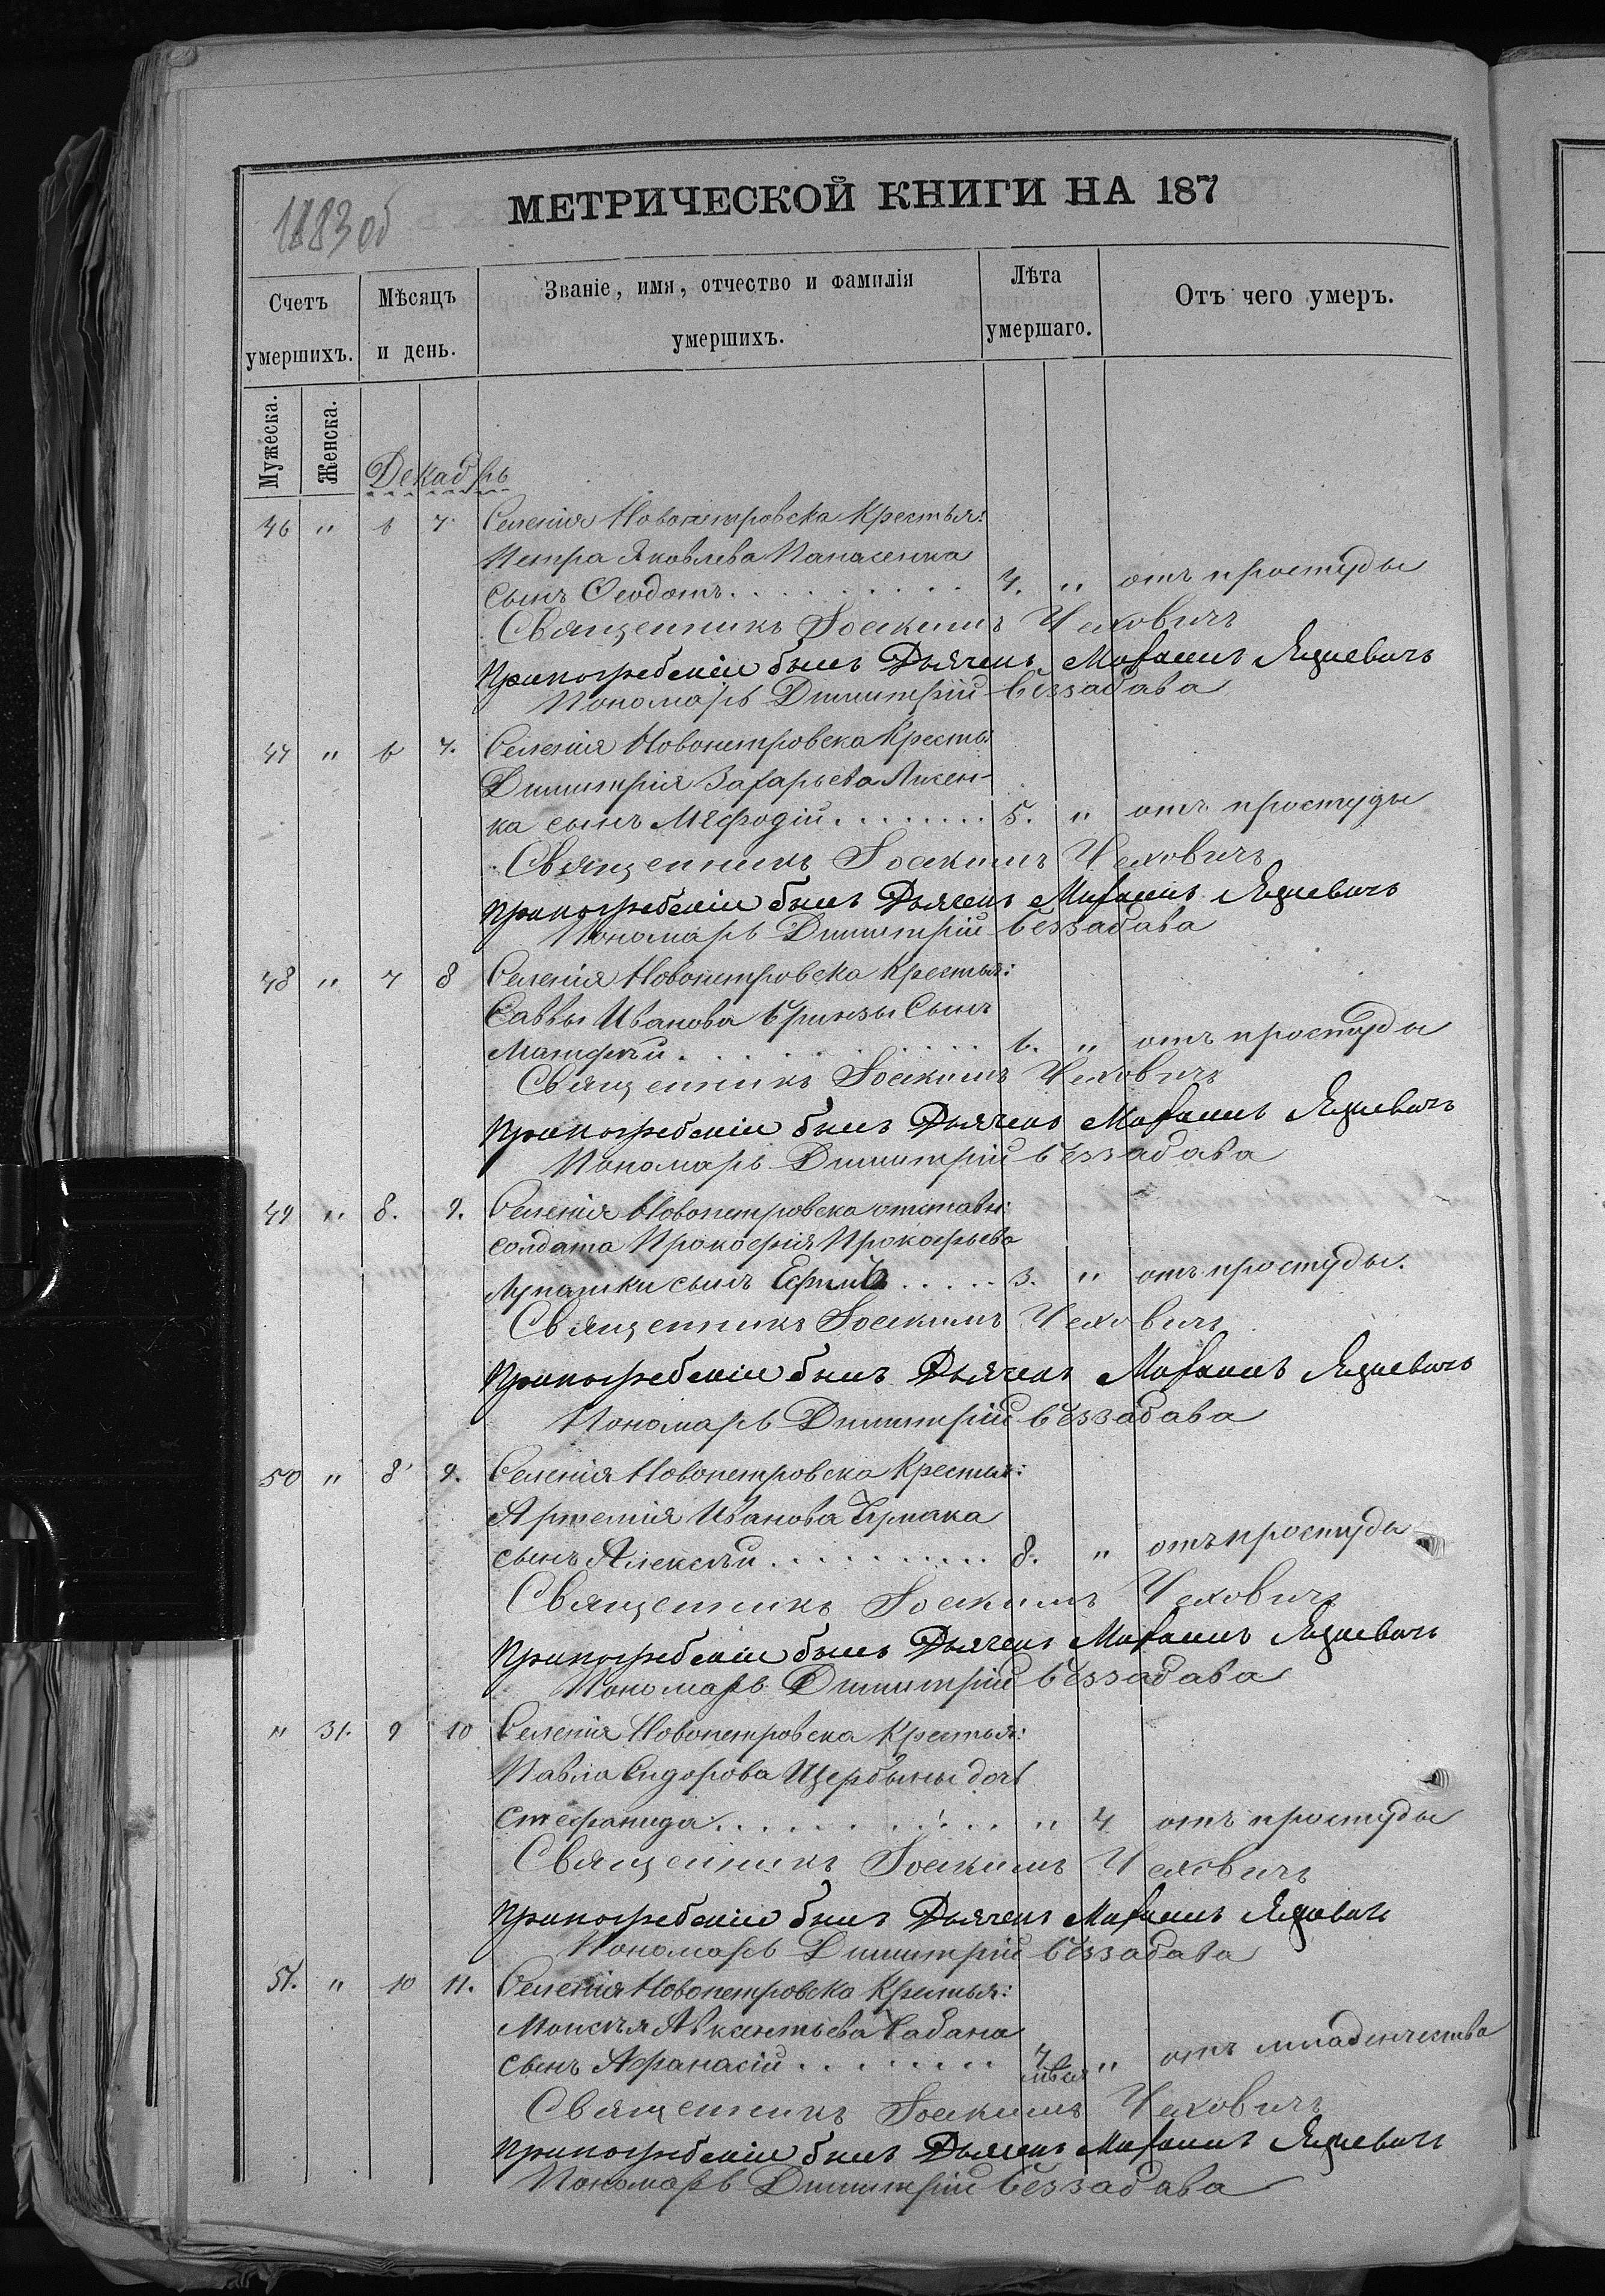 1883 об
МЕТРИЧЕСКОЙ КНИГИ НА 187
Счетъ умершихъ.
Мѣсяцъ и день.
Званіе, имя, отчество и фамилія умершихъ.
Лѣта умершаго.
Отъ чего умеръ.
Мужеска.
Женска.
Декабрь
46 " 6 7. Селенія Новопетровска Крестья:
Петра Яковлева Панасенка
сынъ Ѳеодотъ. 4. " отъ простуды
Священникъ Іоакимъ Чехович
При погребеніи былъ Дьячекъ Михаилъ Яцкевичъ
Пономарь Димитрій Беззабава
47 " 6 7. Селенія Новопетровска Кресть:
Димитрія Захарьева Лисен-
ка сынъ Мефодій 5. " отъ простуды
Священникъ Іоакимъ Чеховичъ
При погребеніи былъ Дьячекъ Михаилъ Яцкевичъ
Пономарь Димитрій Беззабава
48 " 7 8 Селенія Новопетровска Крестья:
Саввы Иванова Бринзы Сынъ
Матфей. 6. " отъ простуды
Священникъ Іоакимъ Чеховичъ
При погребеніи былъ Дьячекъ Михаилъ Яцкевичъ
Пономарь Димитрій Беззабава
49 " 8. 9. Селенія Новопетровска отставн:
солдата Прокофія Прокофьева
Лупашки сынъ Ефимъ 3. " отъ простуды.
Священникъ Іоакимъ Чеховичъ
При погребеніи былъ Дьячекъ Михаилъ Яцкевичъ
Пономарь Димитрій Беззабава
50 " 8 9. Селенія Новопетровска Крестья:
Артемія Иванова
сынъ Алексѣй 8. " отъ простуды
Священникъ Іоакимъ Чеховичъ
При погребеніи былъ Дьячекъ Михаилъ Яцкевичъ
Пономарь Димитрій Беззабава
" 31. 9 10 Селенія Новопетровска Крестья:
Павла Сидорова Щербины дочь
Стефанида " 4 отъ простуды
Священникъ Іоакимъ Чеховичъ
При погребеніи былъ Дьячекъ Михаилъ Яцкевичъ
Пономарь Димитрій Беззабава
51. " 10 11. Селенія Новопетровска Крестья:
Моисѣя Авксентьева
сынъ Афанасій " отъ младенчества
Священникъ Іоакимъ Чеховичъ
При погребеніи былъ Дьячекъ Михаилъ Яцкевичъ
Пономарь Димитрій Беззабава